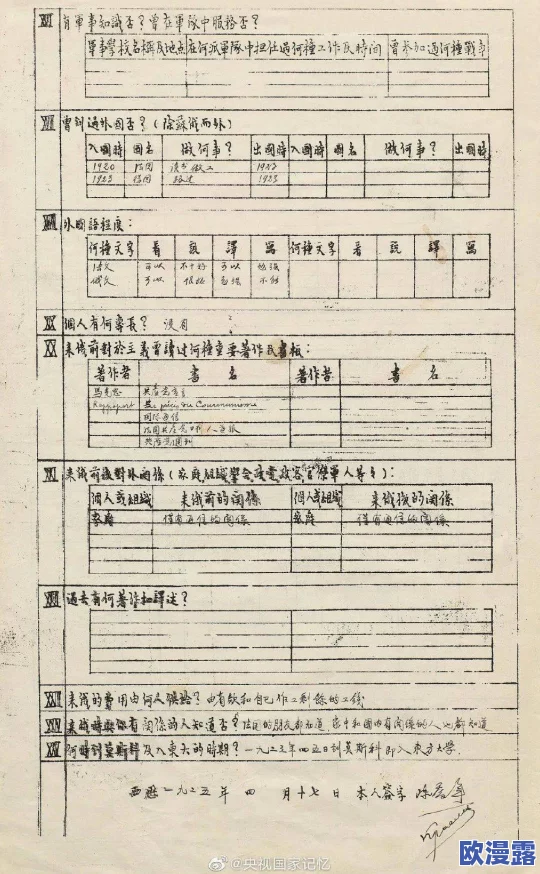 XVI 有軍事知識否？曾在軍隊中服務否？
軍事學校名稱及地点 在何派軍隊中担任過何種工作及時间 曾参加過何種戰事
XVII 曾到過外囯否？（除蘇俄而外）
入囯時 囯名 做何事？ 出囯時 入囯時 囯名 做何事？ 出囯時
1920 法囯 讀書做工
1923 德囯 路过 1923
XVIII 外囯語程度：
何種文字 看 説 譯 寫 何種文字 看 説 譯 寫
法文 可以 不十分好 可以 勉强
俄文 可以
XIX 個人有何專長？ 没有
XX 来俄前對於主義曾讀过何種重要著作及書板：
著作者 書名 著作者 書名
馬克思 共產党宣言
Rappoport Précis du Communisme
共產党週刊
XXI 来俄前後對外関係（家庭組織學会政党政客官僚軍人等々）：
個人或組織 来俄前的関係 個人或組織 来俄後的関係
家庭 僅有通信的関係 家庭 僅有通信的関係
XXII 過去有何著作和譯述？
XXIII 来俄的費用由何人供给？由有欵和自己作工剩餘的工錢
XXIV 来俄時與你有関係的人知道否？法囯的朋友都知道 家中和囯内有関係的人也都知道
XXV 何時到莫斯科及入東大的時期？一九二三年四五日到莫斯科即入東方大學
西歷一九二五年 四 月十七日 本人簽字 陈喬年
@央视国家记忆
欧漫露